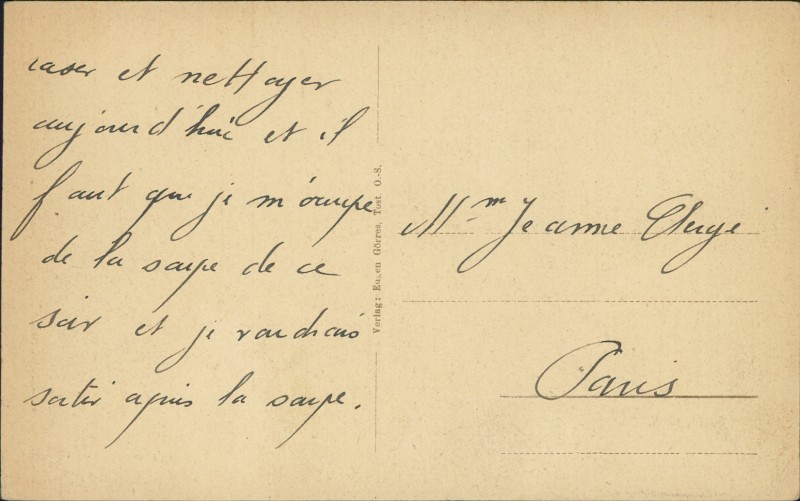 caser et nettoyer
aujourd'hui et il
faut que je m'occupe
de la soupe de ce
soir et je voudrais
sortir après la soupe.
Verlag: Eugen Görres, Tost O.-S.
Mme Jeanne
Paris